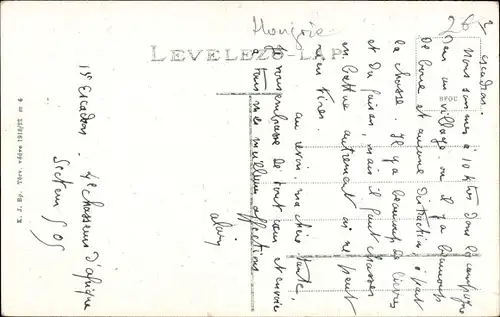 Hongrie
26
LEVELEZŐ-LAP
escadron.
Nous sommes à 10 kil dans la campagne
dans un village où il y a beaucoup
de boue et aucune distraction à part
la chasse. Il y a beaucoup de lièvres
et du faisan, mais il faut chasser
en bottes autrement on ne peut
rien tirer.
au revoir, ma chère tante,
je vous embrasse de tout cœur et envoie
à tous mes meilleures affections
alain
1er Escadron. 4e chasseurs d'afrique
Secteur 505